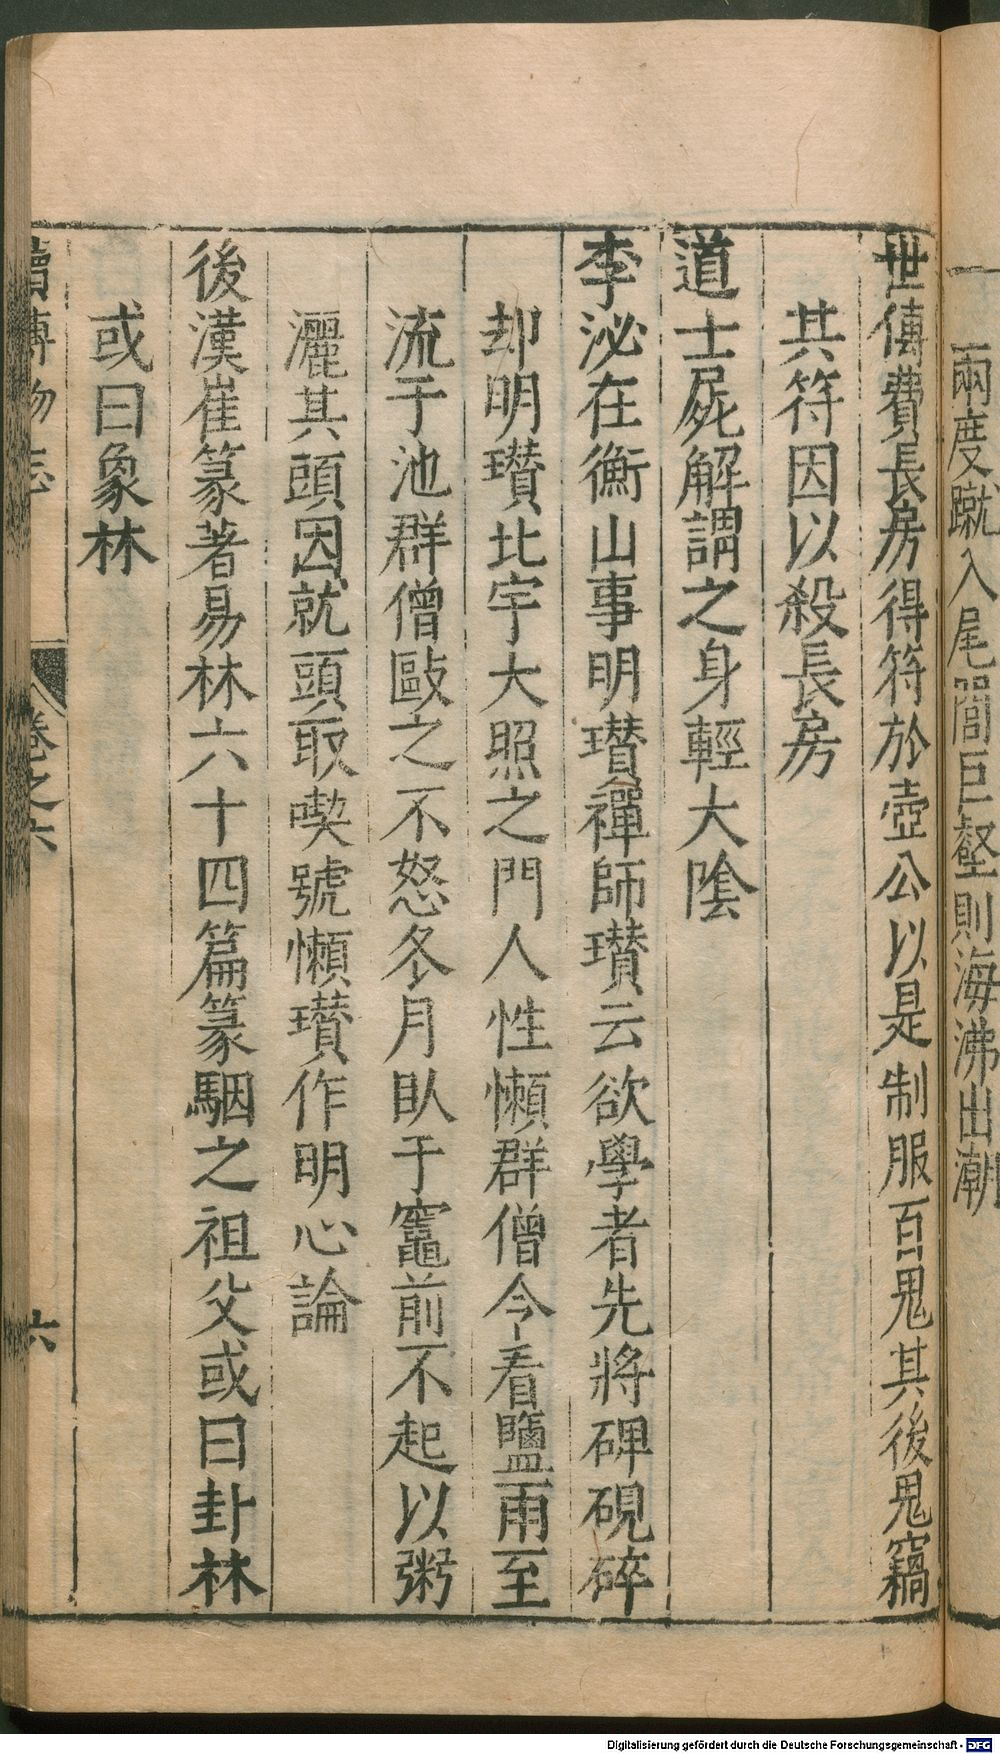 兩度蹴入尾閭巨壑則海沸出潮
世傳費長房得符於壺公以是制服百鬼其後鬼竊
其符因以殺長房
道士屍解謂之身輕大陰
李泌在衡山事明瓚禪師瓚云欲學者先將碑硯碎
却明瓚北宇大照之門人性懶群僧令看鹽雨至
流于池群僧毆之不怒冬月臥于竈前不起以粥
灑其頭因就頭取喫號懶瓚作明心論
後漢崔篆著易林六十四篇篆駰之祖父或曰卦林
或曰象林
續博物志
卷之六
六
Digitalisierung gefördert durch die Deutsche Forschungsgemeinschaft - DFG